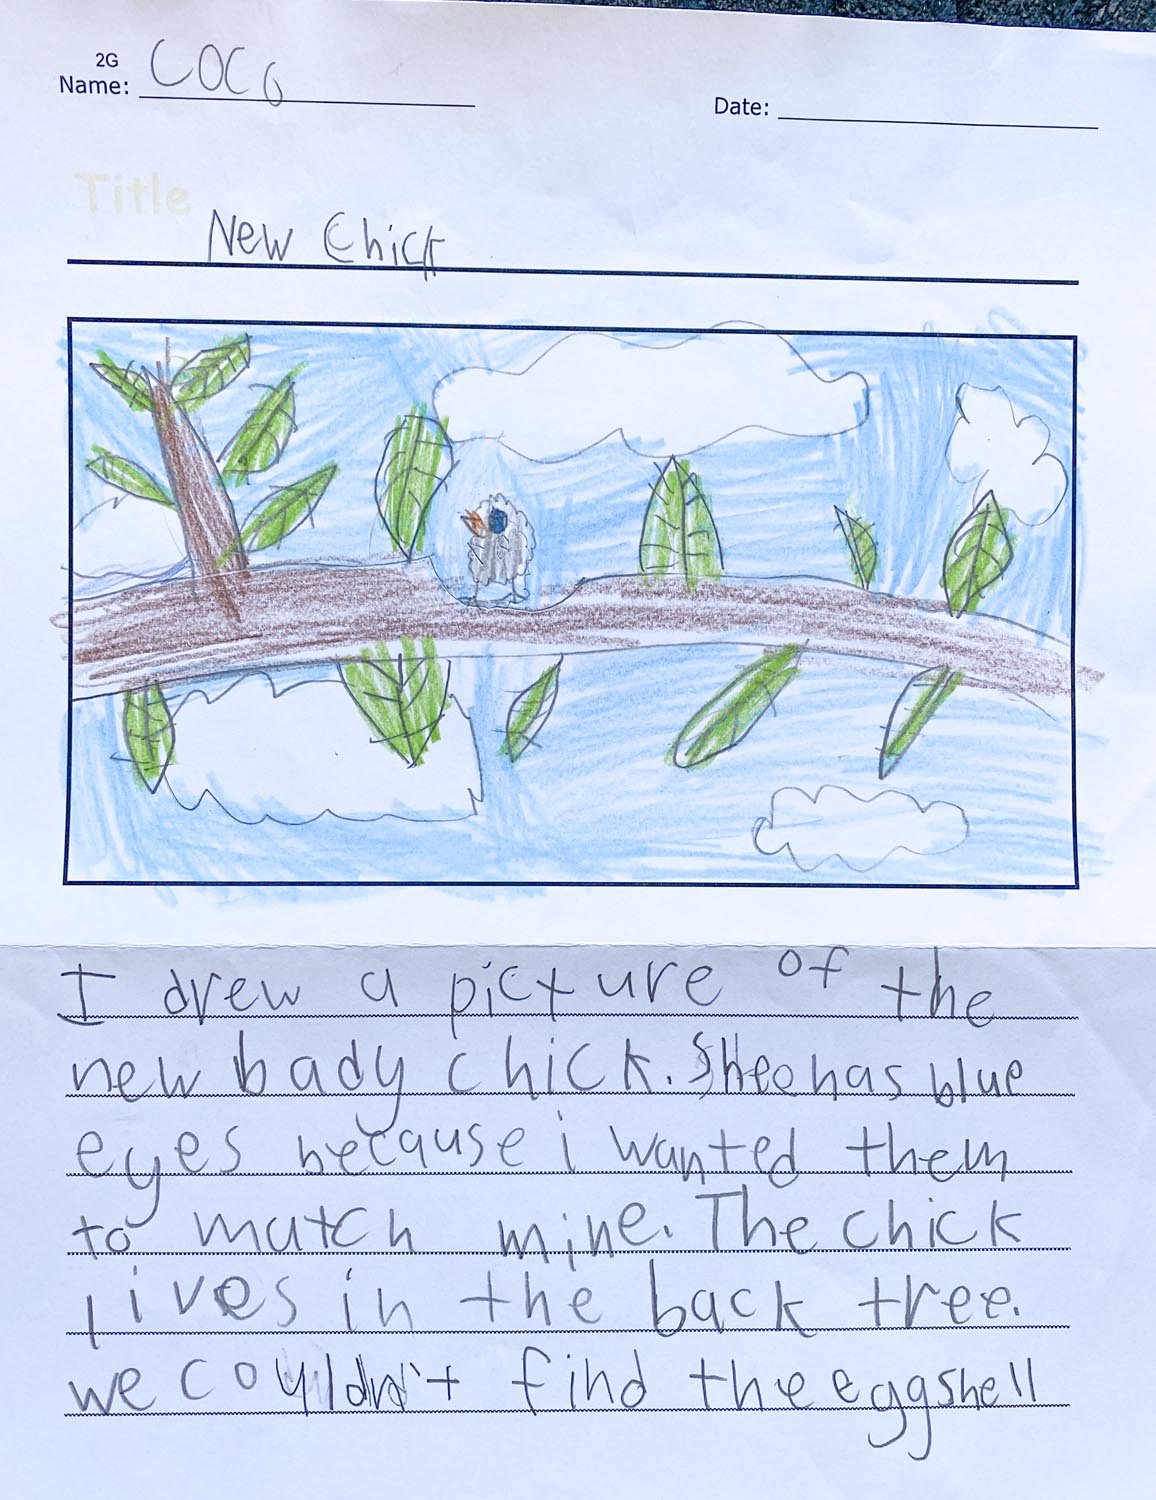 2G
Name: COCO
Date:
Title
New Chick
I drew a picture of the
new bady chick. Sheo has blue
eyes because i wanted them
to match mine. The chick
lives in the back tree.
we couldn't find the eggshell